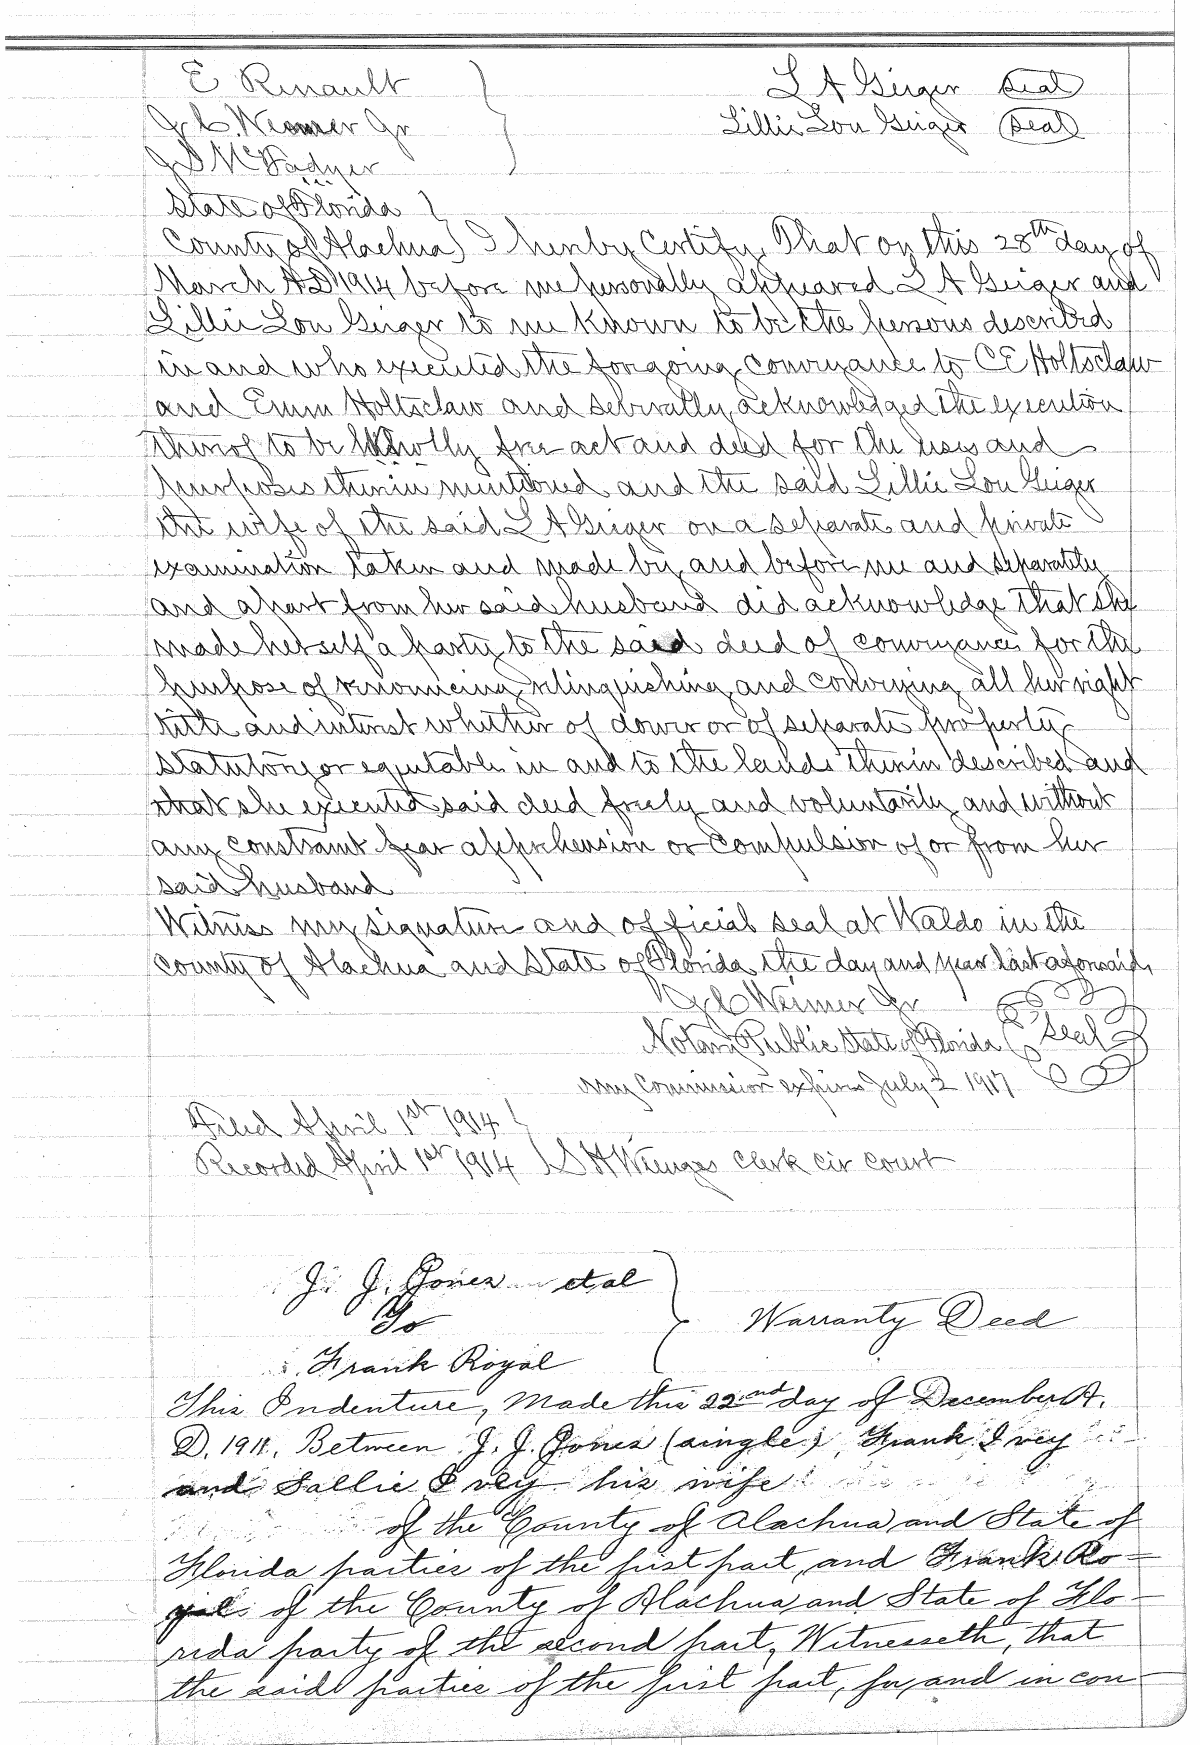 E Renault L A Geiger Seal
J C Weimer Jr Lillie Lou Geiger Seal
J S McFadyer
State of Florida
County of Alachua I hereby Certify, That on this 28th day of
March AD 1914 before me personally appeared L A Geiger and
Lillie Lou Geiger to me known to be the persons described
in and who executed the forgoing conveyance to C E Holtsclaw
and Emm Holtsclaw and severally acknowledged the execution
thereof to be free act and deed for the uses and
purposes therein mentioned and the said Lillie Lou Geiger
the wife of the said L A Geiger on a separate and private
examination taken and made by and before me and separately
and apart from her said husband did acknowledge that she
made herself a party to the said deed of conveyance for the
purpose of renouncing, relinquishing and conveying all her right
title and interest whether of dower or of separate property
statutory or equitable in and to the lands therein described and
that she executed said deed freely and voluntarily and without
any constraint fear apprehension or compulsion of or from her
said husband
Witness my signature and official seal at Waldo in the
County of Alachua and State of Florida the day and year last aforesaid
J C Weimer Jr
Notary Public State of Florida Seal
My Commission expires July 2 1917
Filed April 1st 1914
Recorded April 1st 1914 S H Wienges Clerk Cir Court
J. J. Jones et al
To
Warranty Deed
Frank Royal
This Indenture, Made this 22nd day of December A.
D. 1911, Between J. J. Jones (single), Frank Ivey
and Sallie Ivey his wife
of the County of Alachua and State of
Florida parties of the first part, and Frank Ro-
yal of the County of Alachua and State of Flo-
rida party of the second part, Witnesseth, that
the said parties of the first part, for and in con-